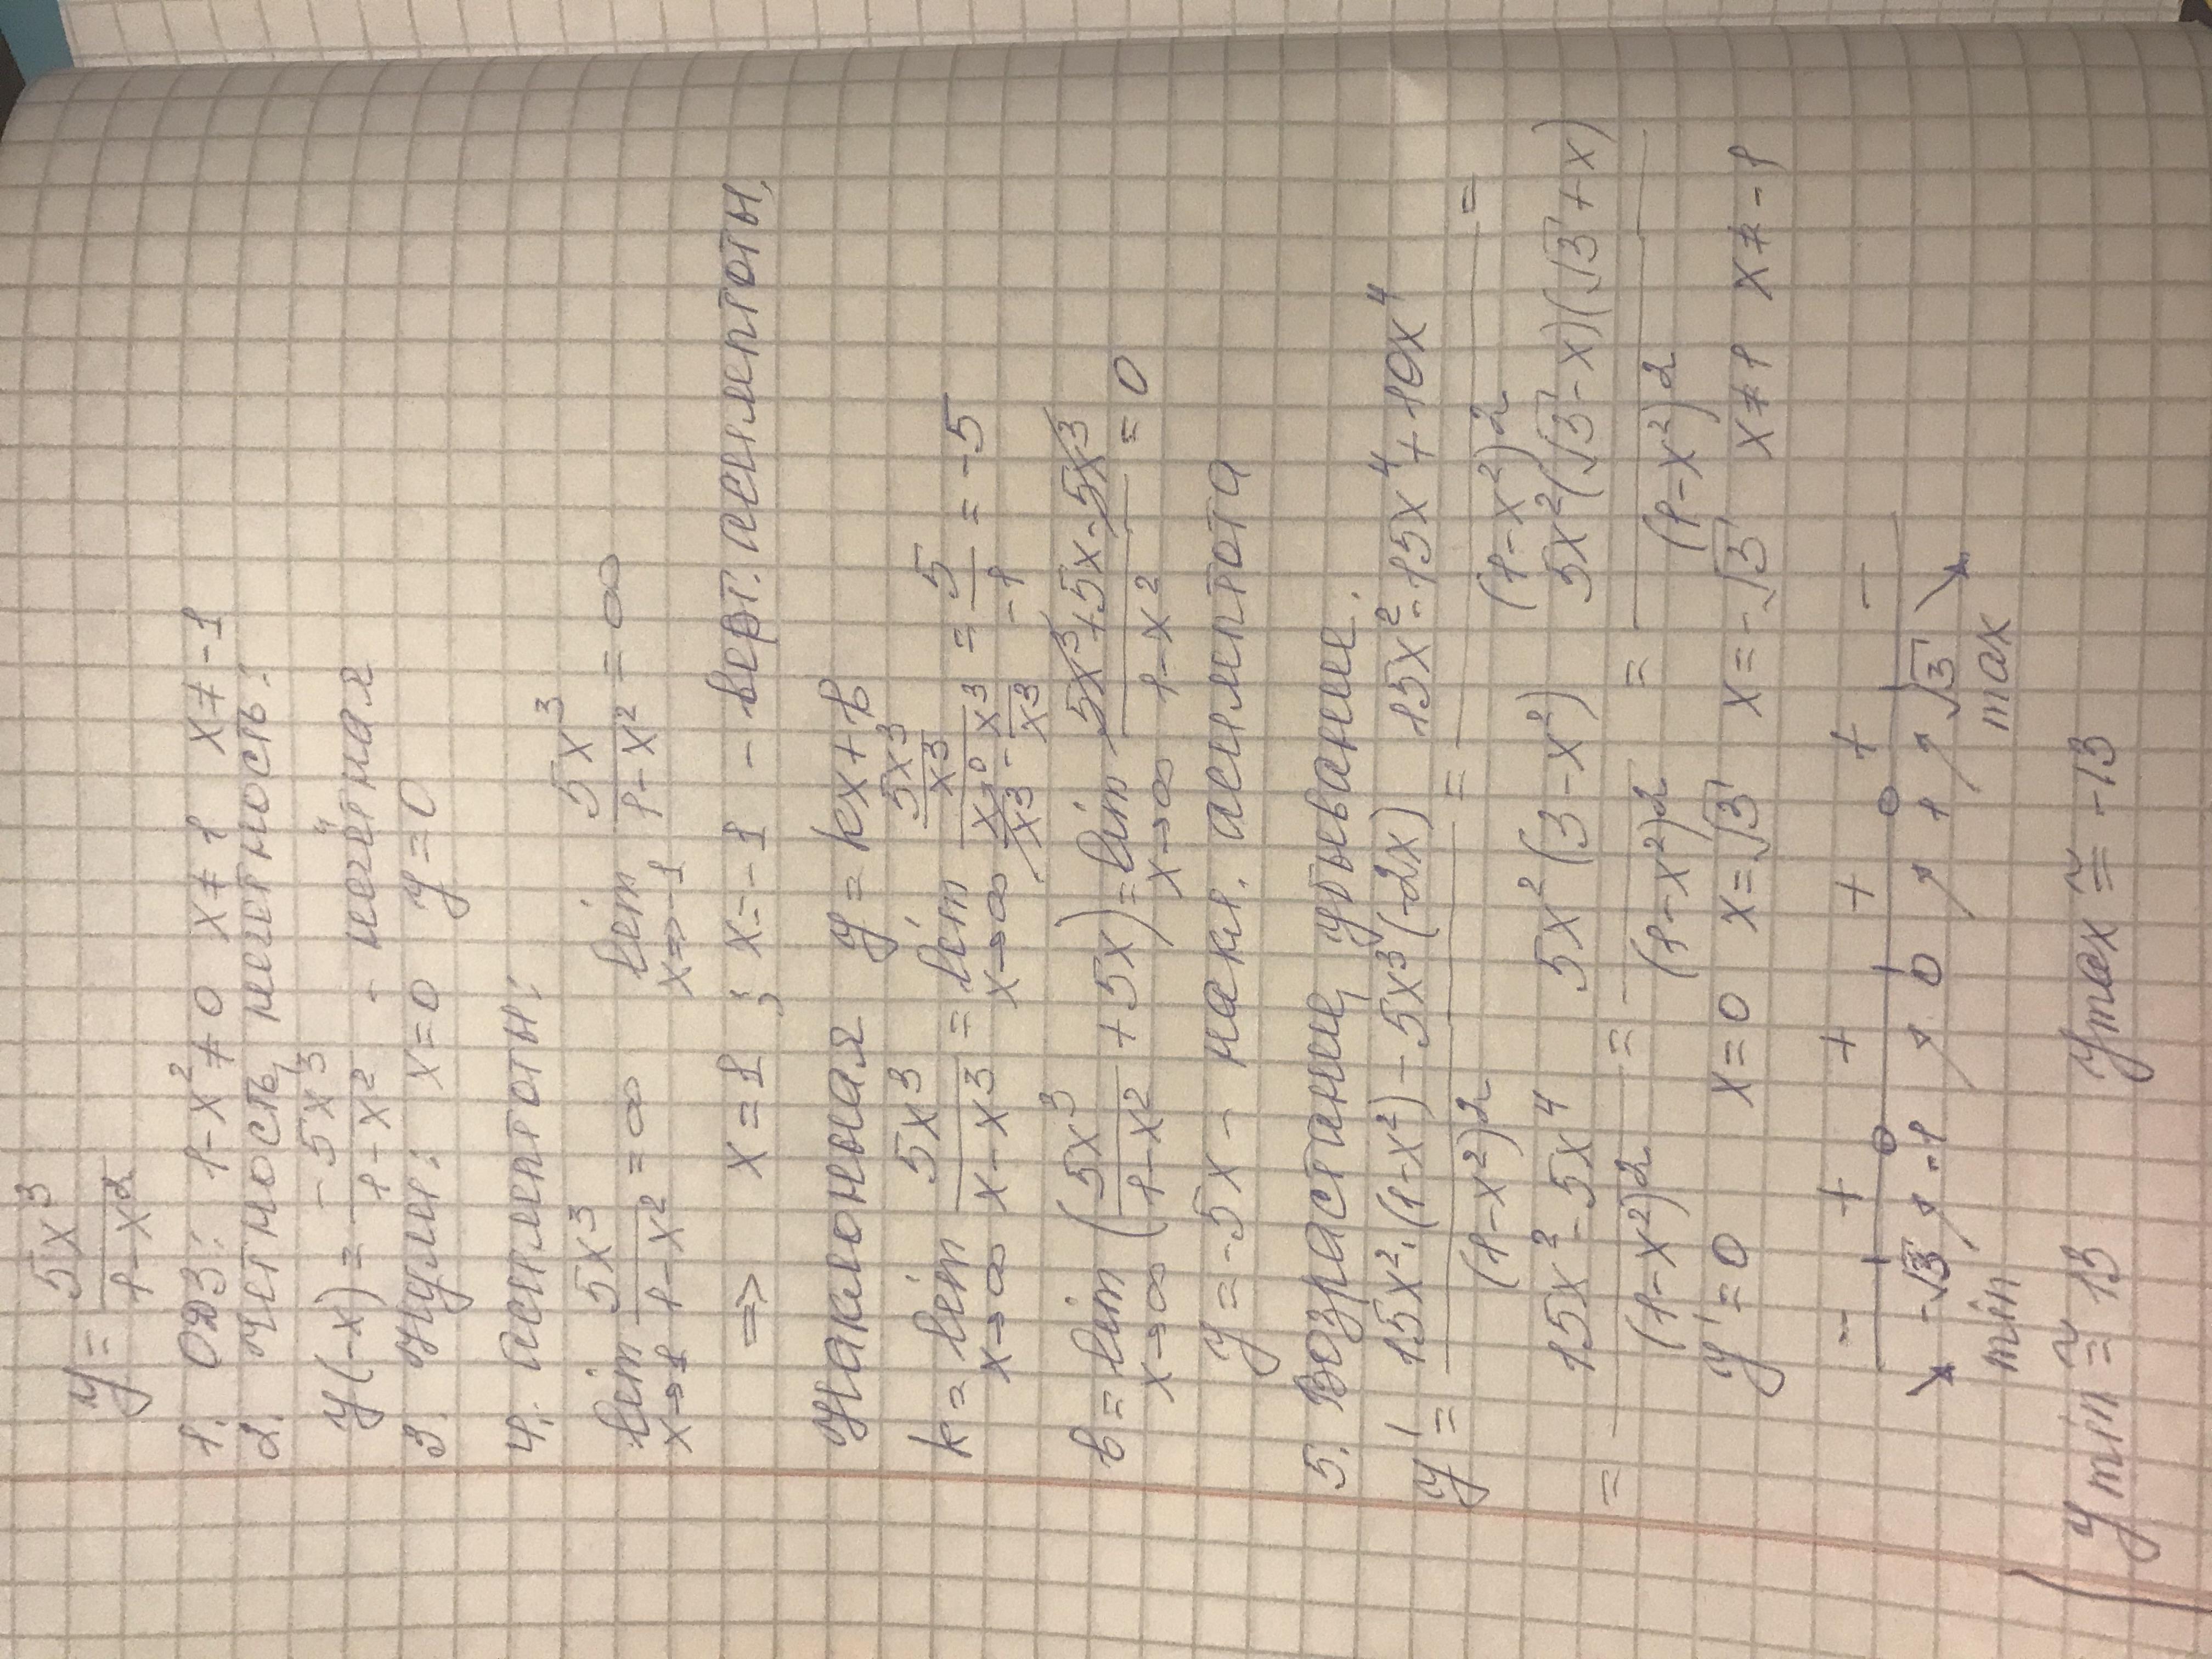 y = 5x³/(1-x²)
1. ОДЗ: 1-x² ≠ 0 x ≠ 1 x ≠ -1
2. Четность, нечетность:
y(-x) = -5x³/(1-x²) - нечётная
3. Нули: x=0 y=0
4. Асимптоты:
lim x→1 5x³/(1-x²) = ∞ lim x→-1 5x³/(1-x²) = ∞
=> x=1 ; x=-1 - верт. асимптоты,
Наклонная y = kx+b
k = lim x→∞ 5x³/(x-x³) = lim x→∞ (5x³/x³)/(x/x³ - x³/x³) = 5/-1 = -5
b = lim x→∞ (5x³/(1-x²) + 5x) = lim x→∞ (5x³+5x-5x³)/(1-x²) = 0
y = -5x - накл. асимптота
5. Возрастание, убывание:
y' = (15x²·(1-x²) - 5x³(-2x))/(1-x²)² = (15x² - 15x⁴ + 10x⁴)/(1-x²)² =
= (15x² - 5x⁴)/(1-x²)² = 5x²(3-x²)/(1-x²)² = 5x²(√3-x)(√3+x)/(1-x²)²
y' = 0 x=0 x=√3 x=-√3 x≠1 x≠-1
- + + + + -
-√3 -1 0 1 √3
min max
y min ≅ 13 y max ≅ -13